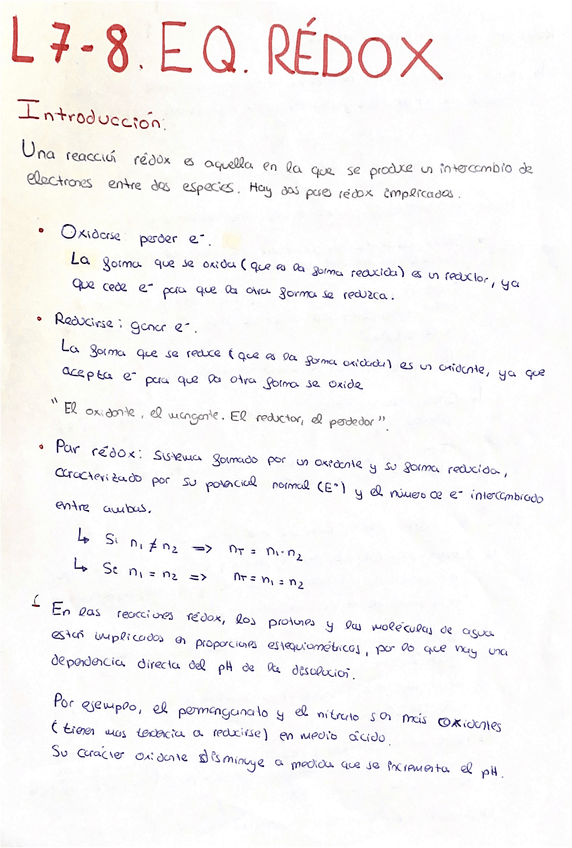 L 7-8. EQ. RÉDOX
Introducción.
Una reacción rédox es aquella en la que se produce un intercambio de
electrones entre dos especies. Hay dos pares rédox implicados.
• Oxidarse perder e⁻.
La forma que se oxida (que es la forma reducida) es un reductor, ya
que cede e⁻ para que la otra forma se reduzca.
• Reducirse: ganar e⁻.
La forma que se reduce (que es la forma oxidada) es un oxidante, ya que
acepta e⁻ para que la otra forma se oxide
"El oxidante, el mangante. El reductor, el perdedor".
• Par rédox: sistema formado por un oxidante y su forma reducida,
caracterizado por su potencial normal (E°) y el número de e⁻ intercambiado
entre ambas.
↳ Si n₁ ≠ n₂ => nT = n₁·n₂
↳ Se n₁ = n₂ => nT = n₁ = n₂
En las reacciones rédox, los protones y las moléculas de agua
están implicados en proporciones estequiométricos, por lo que hay una
dependencia directa del pH de la disolución.
Por ejemplo, el permanganato y el nitrato son más oxidantes
(tienen más tendencia a reducirse) en medio ácido.
Su carácter oxidante disminuye a medida que se incrementa el pH.